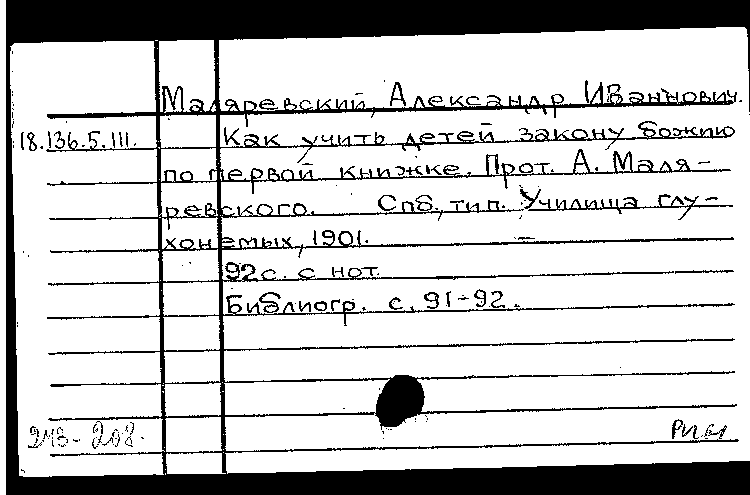 Маляревский, Александр Иваннович.
18.136.5.III. Как учить детей закону божию
по первой книжке. Прот. А. Маля-
ревского. Спб, тип. Училища глу-
хонемых, 1901.
92 с. с нот.
Библиогр. с. 91-92.
243-208.